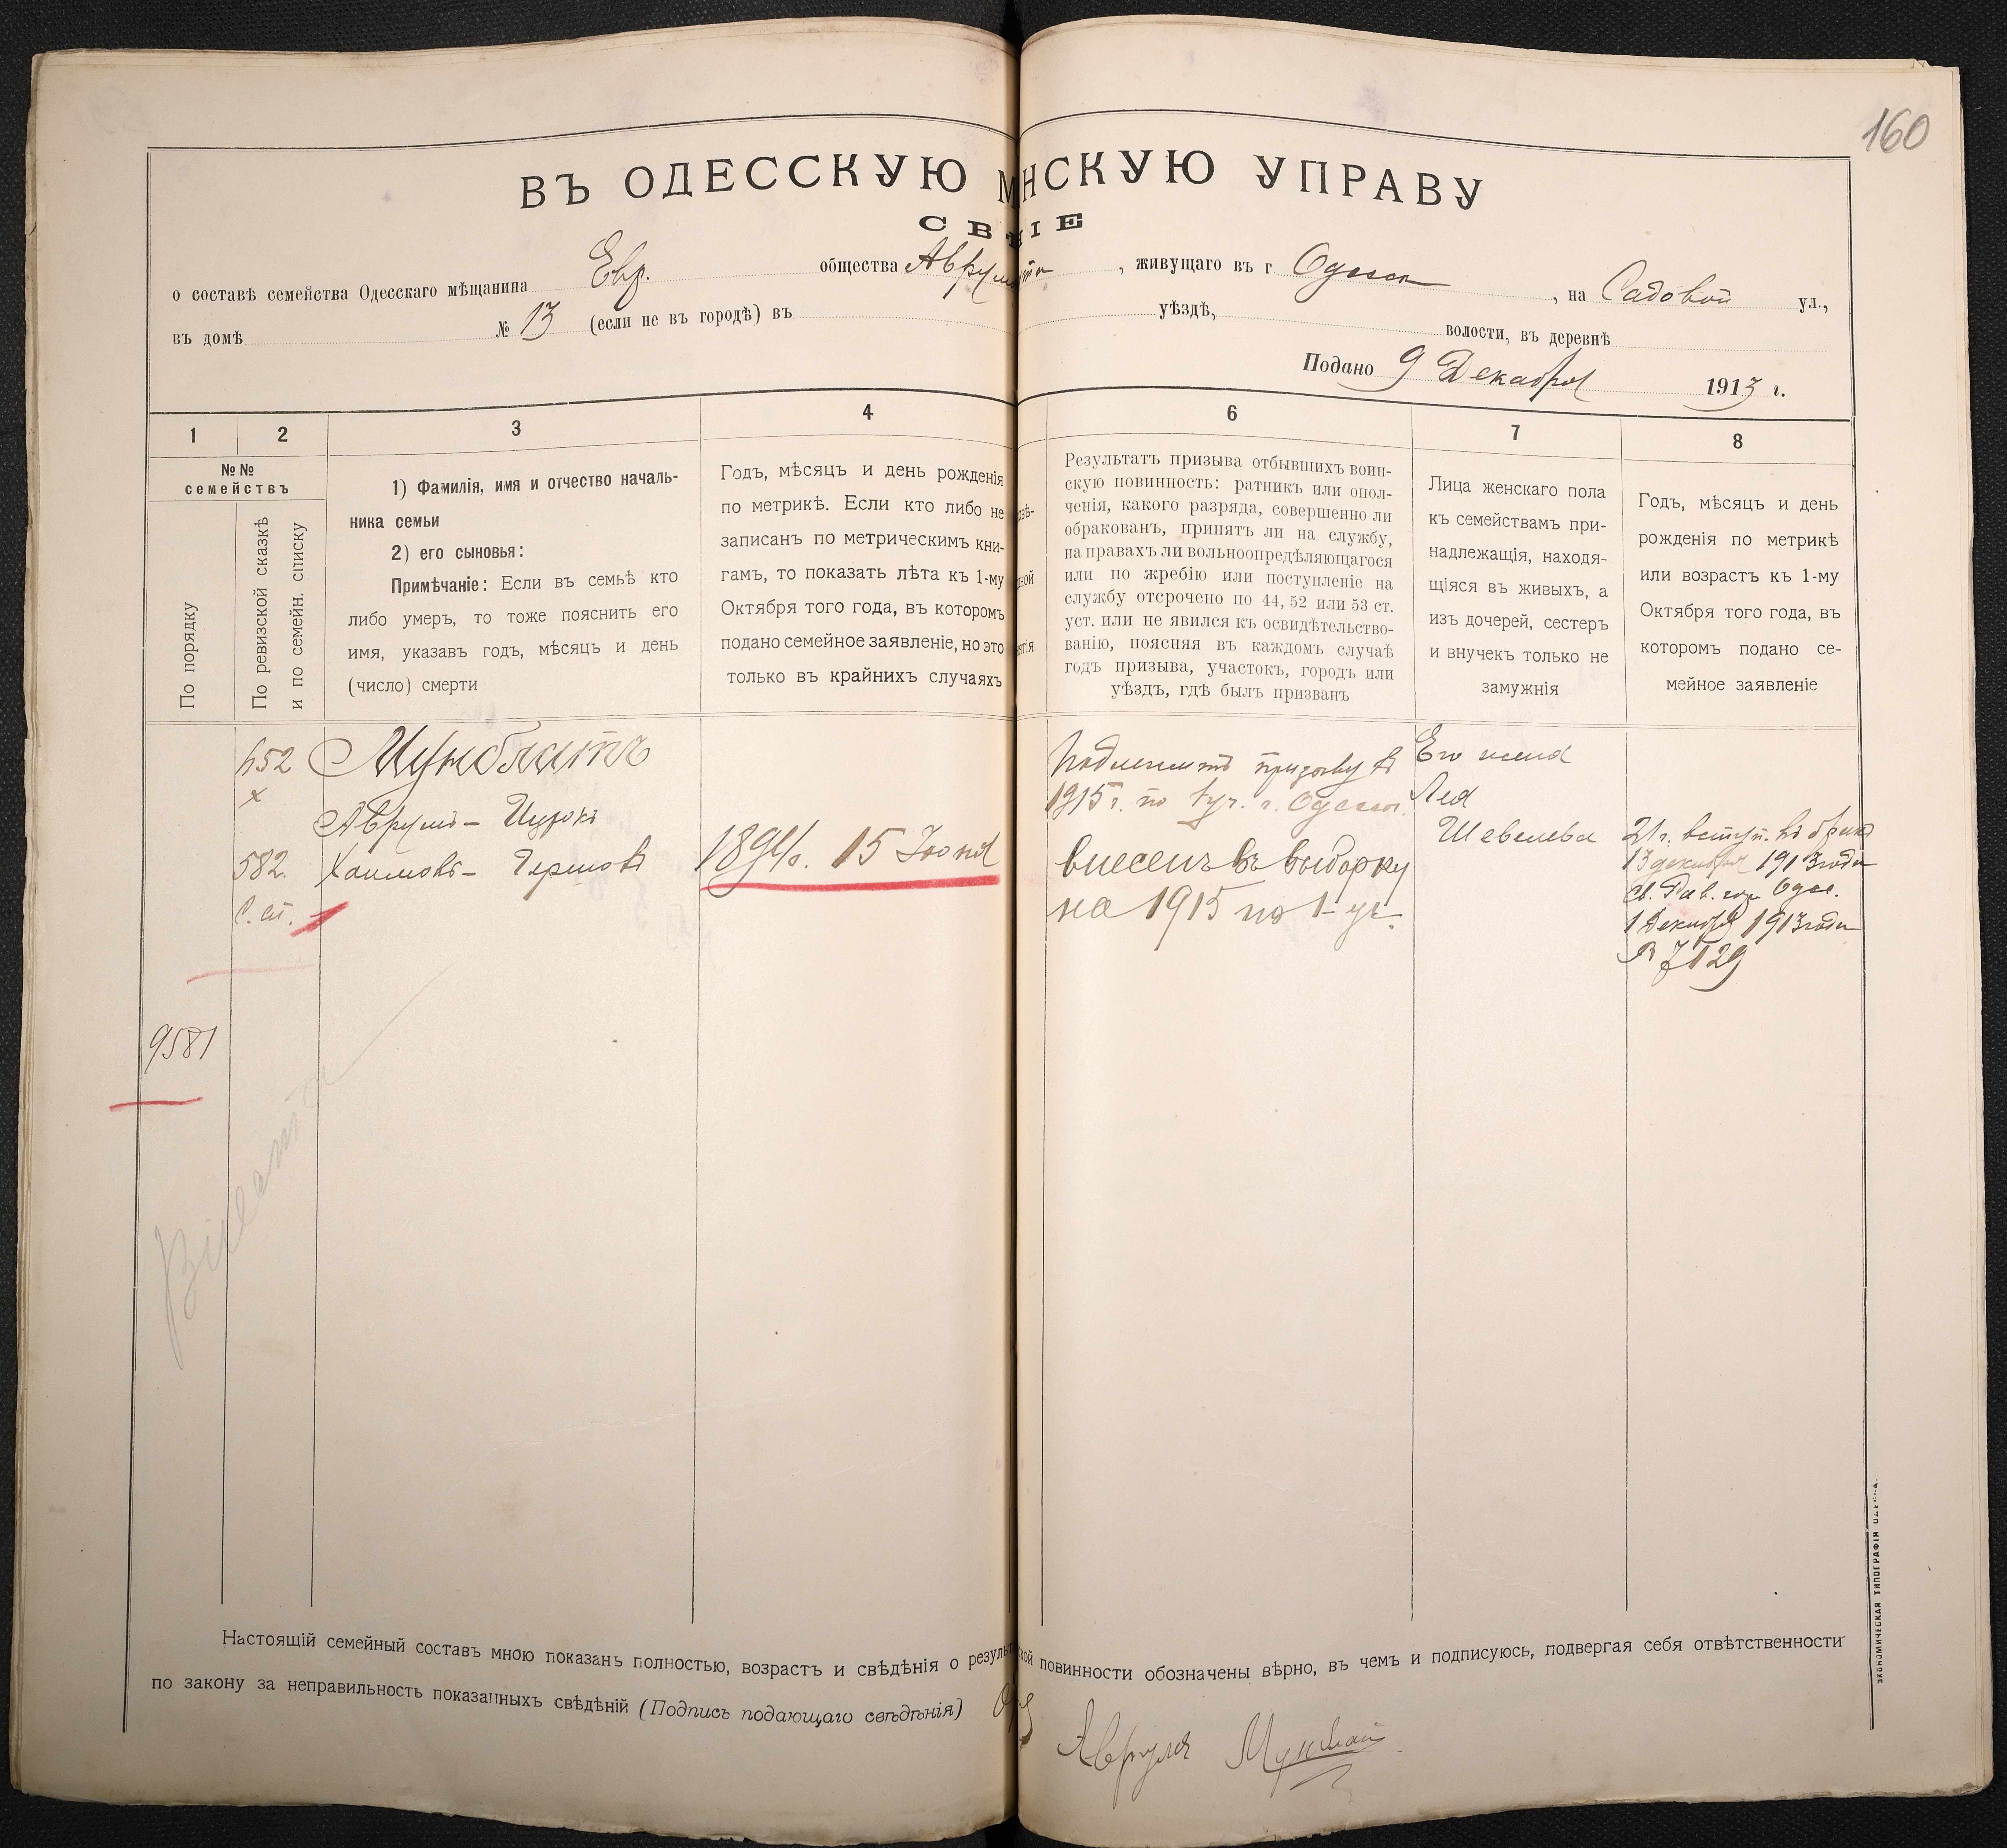 160
ВЪ ОДЕССКУЮ М НСКУЮ УПРАВУ
СВ НІЕ
о составѣ семейства Одесскаго мѣщанина Евр. общества , живущаго въ г Одесса , на Садовой ул.,
въ домѣ № 13 (если не въ городѣ) въ уѣздѣ, волости, въ деревнѣ
Подано 9 Декабря 1913 г.
1
2
3
4
6
7
8
№ №
семействъ
По порядку
По ревизской сказкѣ
и по семейн. списку
1) Фамилія, имя и отчество началь-
ника семьи
2) его сыновья:
Примѣчаніе: Если въ семьѣ кто
либо умеръ, то тоже пояснить его
имя, указавъ годъ, мѣсяцъ и день
(число) смерти
Годъ, мѣсяцъ и день рожденія
по метрикѣ. Если кто либо не
записанъ по метрическимъ кни-
гамъ, то показать лѣта къ 1-му
Октября того года, въ которомъ
подано семейное заявленіе, но это
только въ крайнихъ случаяхъ
Результатъ призыва отбывшихъ воин-
скую повинность: ратникъ или опол-
ченія, какого разряда, совершенно ли
обракованъ, принятъ ли на службу,
на правахъ ли вольноопредѣляющагося
или по жребію или поступленіе на
службу отсрочено по 44, 52 или 53 ст.
уст. или не явился къ освидѣтельство-
ванію, поясняя въ каждомъ случаѣ
годъ призыва, участокъ, городъ или
уѣздъ, гдѣ былъ призванъ
Лица женскаго пола
къ семействамъ при-
надлежащія, находя-
щіяся въ живыхъ, а
изъ дочерей, сестеръ
и внучекъ только не
замужнія
Годъ, мѣсяцъ и день
рожденія по метрикѣ
или возрастъ къ 1-му
Октября того года, въ
которомъ подано се-
мейное заявленіе
652
x
582.
С. сп.
9581
Мунблитъ
Аврумъ - Ицхокъ
Хаимовъ - Гершовъ
1894 г. 15 Іюня
Подлежитъ призыву въ
1915 г. по 1 уч. г. Одессы.
Внесенъ въ выборку
на 1915 по 1 уч.
Его жена
Лея
Шевелева
21 г. вступ. въ бракъ
13 декабря 1913 года
св. Рав. гор. Одес.
1 Декабря 1913 года
№ 7129
Настоящій семейный составъ мною показанъ полностью, возрастъ и свѣдѣнія о резуль ской повинности обозначены вѣрно, въ чемъ и подписуюсь, подвергая себя отвѣтственности
по закону за неправильность показанныхъ свѣдѣній (Подпись подающаго свѣдѣнія)
Аврумъ
ЭКОНОМИЧЕСКАЯ ТИПОГРАФІЯ